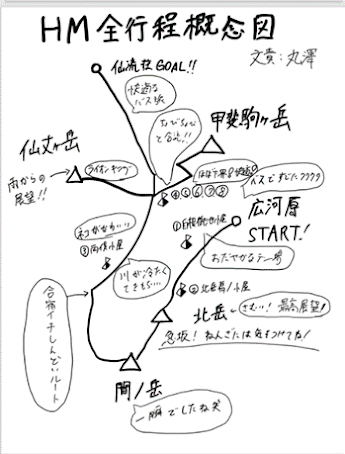 HM全行程概念図
文責：丸澤
仙流荘GOAL!!
快適な
バス旅
甲斐駒ヶ岳
仙丈ヶ岳
ライオンキング
雨からの
展望!!
④⑤⑥⑦⑧
バスですじた〜ワラワラ
広河原
START!
①白根御池小屋
おだやかなテン場
ネコがかわいい
③両俣小屋
川が冷たくて
きもち…
②北岳肩ノ小屋
北岳
さむい！最高展望！
急坂！ねんざには気をつけてね！
合宿イチしんどいルート
間ノ岳
一瞬でしたね笑